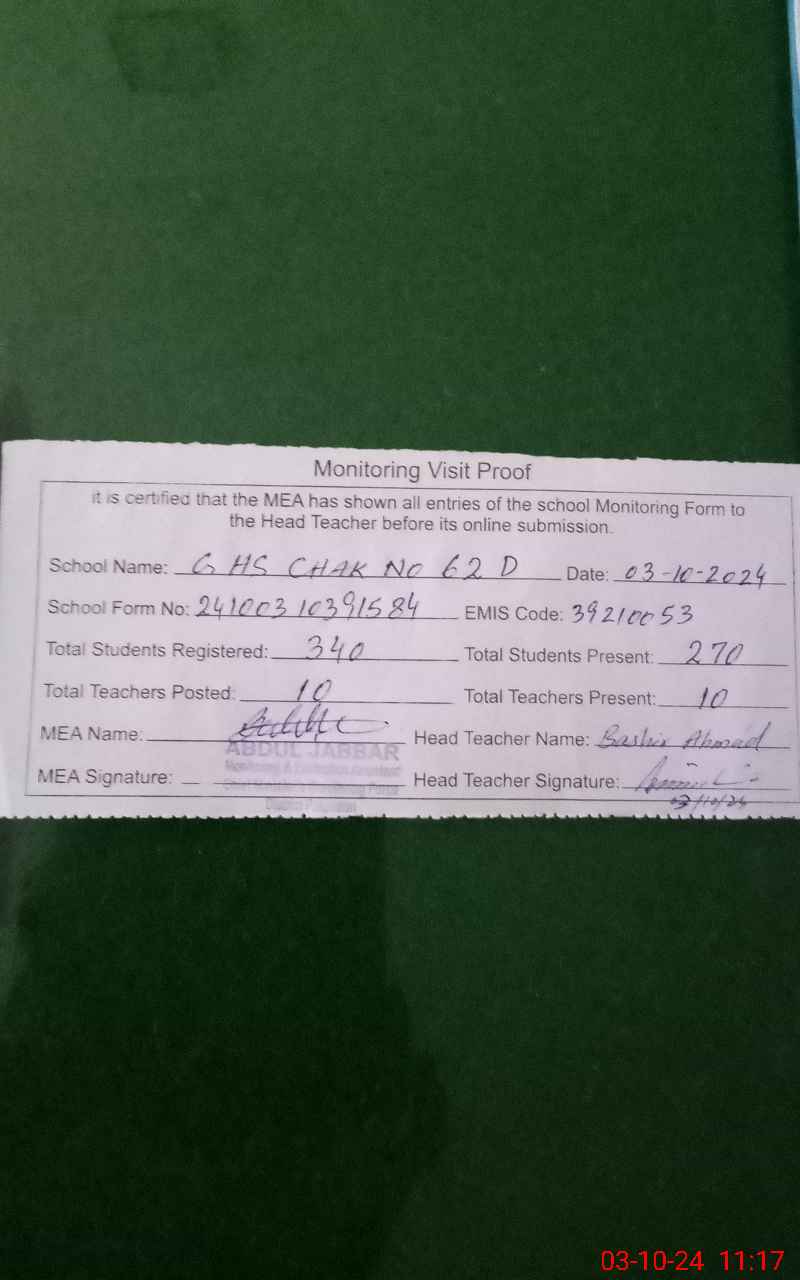 Monitoring Visit Proof
it is certified that the MEA has shown all entries of the school Monitoring Form to
the Head Teacher before its online submission.
School Name: G HS CHAK NO 62 D Date: 03-10-2024
School Form No: 24100310391584 EMIS Code: 39210053
Total Students Registered: 340 Total Students Present: 270
Total Teachers Posted: 10 Total Teachers Present: 10
MEA Name: Head Teacher Name: Bashir Ahmad
ABDUL JABBAR
MEA Signature: Head Teacher Signature:
03-10-24 11:17